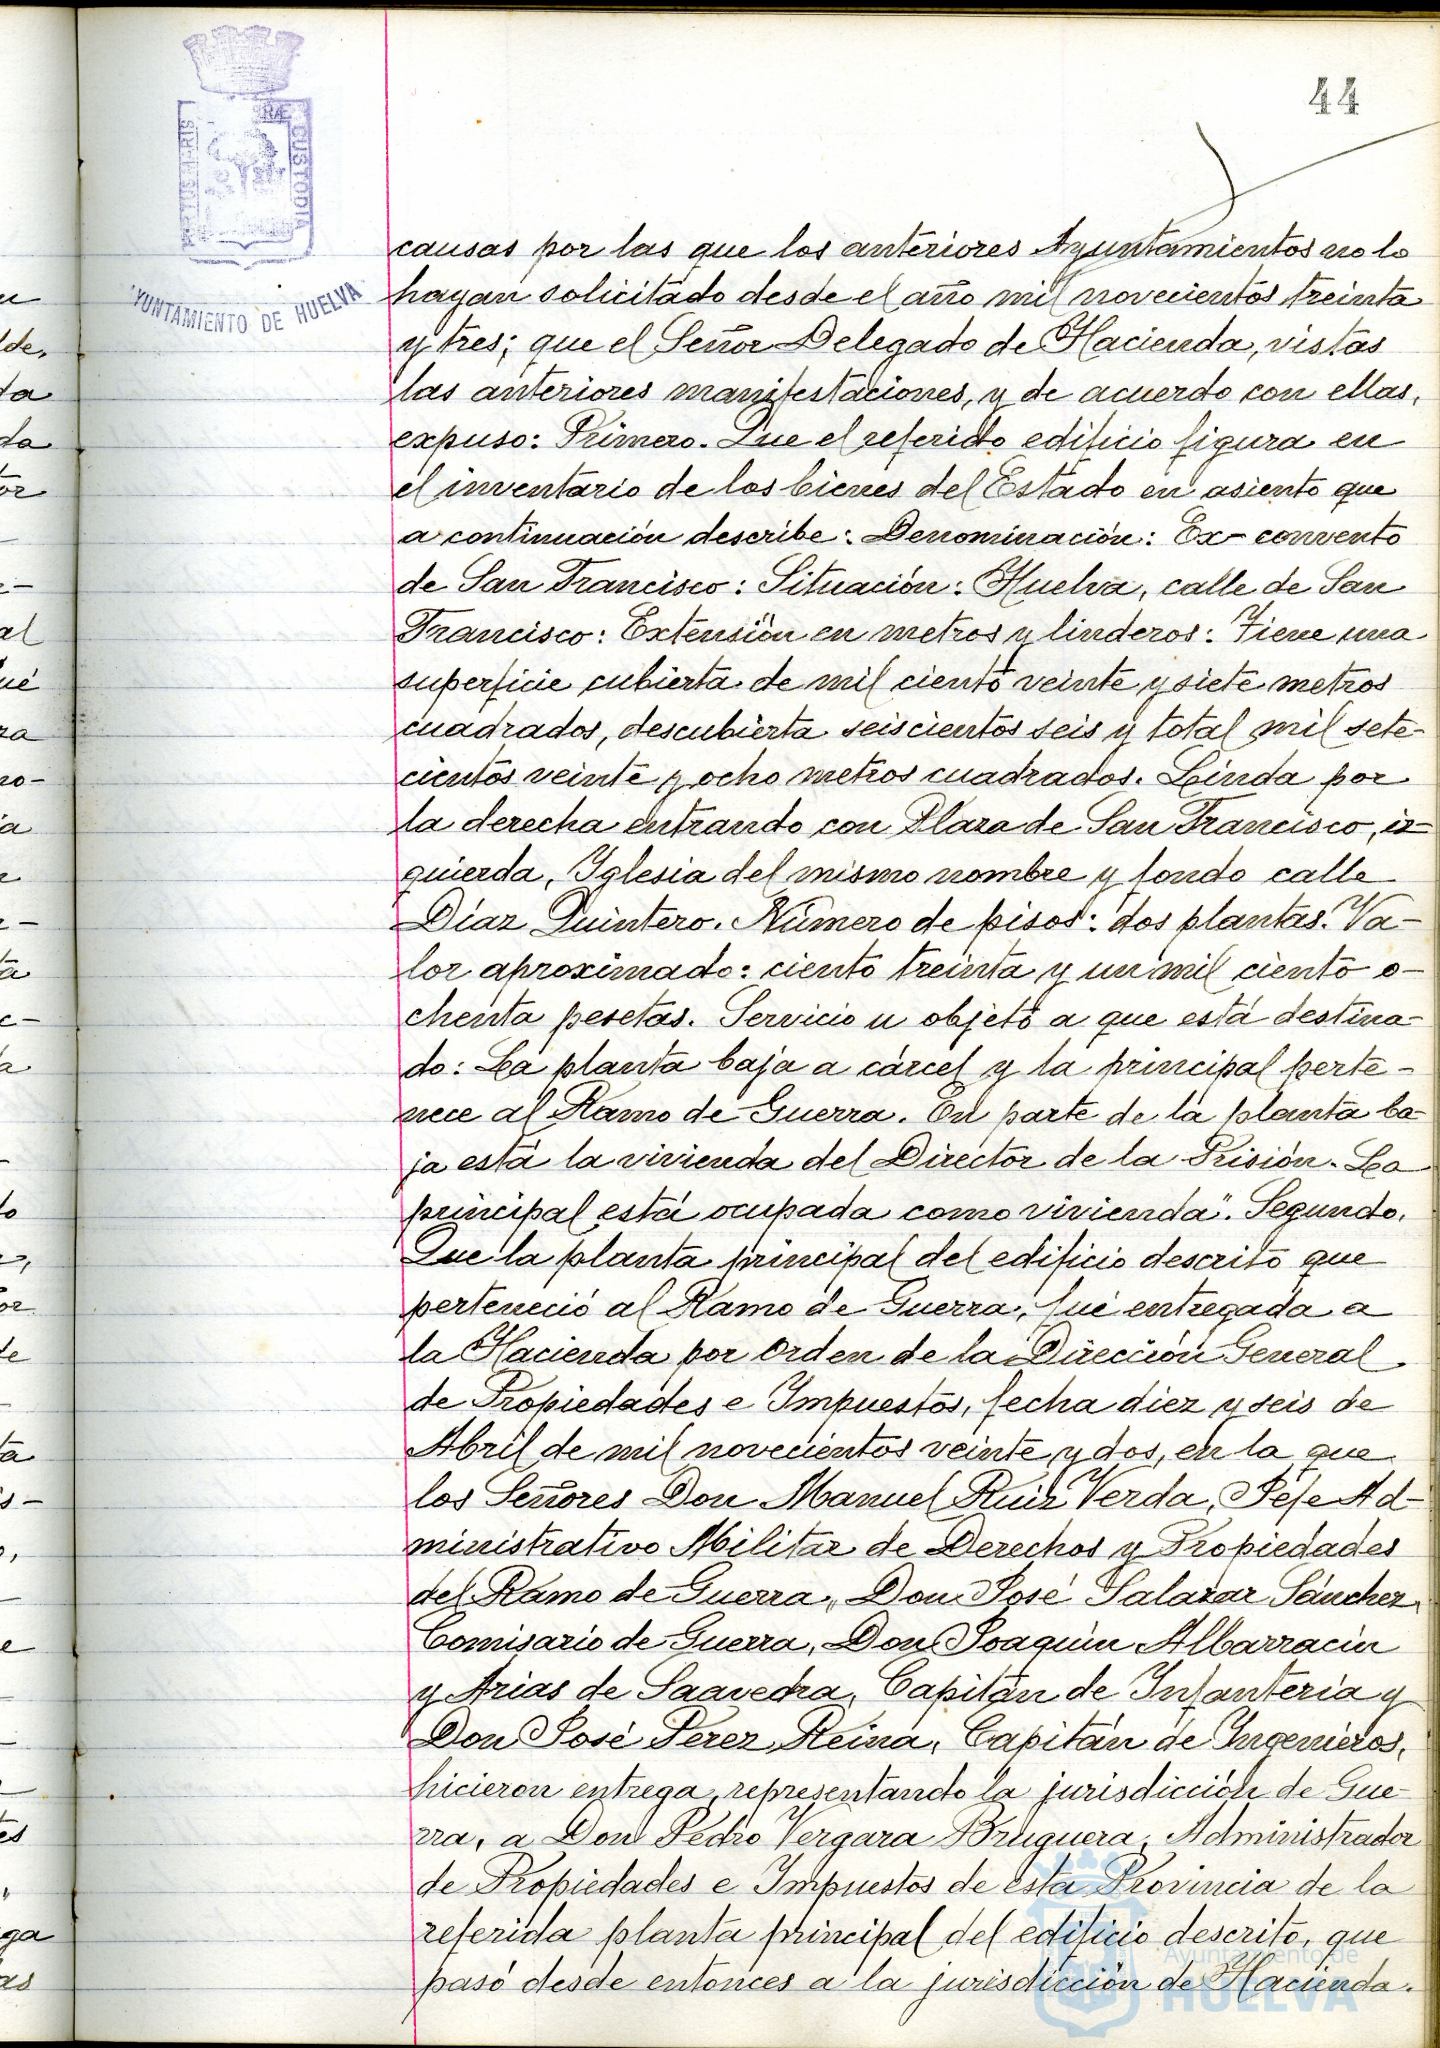 44
PORTUS MARIS
CUSTODIA
YUNTAMIENTO DE HUELVA
causas por las que los anteriores Ayuntamientos no lo
hayan solicitado desde el año mil novecientos treinta
y tres; que el Señor Delegado de Hacienda, vistas
las anteriores manifestaciones, y de acuerdo con ellas,
expuso: Primero. Que el referido edificio figura en
el inventario de los bienes del Estado en asiento que
a continuación describe: Denominación: Ex-convento
de San Francisco: Situación: Huelva, calle de San
Francisco: Extensión en metros y linderos: Tiene una
superficie cubierta de mil ciento veinte y siete metros
cuadrados, descubierta seiscientos seis y total mil sete-
cientos veinte y ocho metros cuadrados. Linda por
la derecha entrando con Plaza de San Francisco, iz=
quierda, Yglesia del mismo nombre y fondo calle
Díaz Quintero. Número de pisos: dos plantas. Va-
lor aproximado: ciento treinta y un mil ciento o-
chenta pesetas. Servicio u objeto a que está destina-
do: La planta baja a cárcel y la principal perte-
nece al Ramo de Guerra. En parte de la planta ba-
ja está la vivienda del Director de la Prisión. La
principal está ocupada como vivienda". Segundo.
Que la planta principal del edificio descrito que
perteneció al Ramo de Guerra, fué entregada a
la Hacienda por Orden de la Dirección General
de Propiedades e Impuestos, fecha diez y seis de
Abril de mil novecientos veinte y dos, en la que
los Señores Don Manuel Ruiz Verda, Jefe Ad-
ministrativo Militar de Derechos y Propiedades
del Ramo de Guerra, Don José Salazar Sánchez,
Comisario de Guerra, Don Joaquin Albarracin
y Arias de Saavedra, Capitán de Infantería y
Don José Perez Reina, Capitán de Ingenieros,
hicieron entrega, representando la jurisdicción de Gue-
rra, a Don Pedro Vergara Bruguera, Administrador
de Propiedades e Impuestos de esta Provincia de la
referida planta principal del edificio descrito, que
pasó desde entonces a la jurisdicción de Hacienda.
Ayuntamiento de
HUELVA